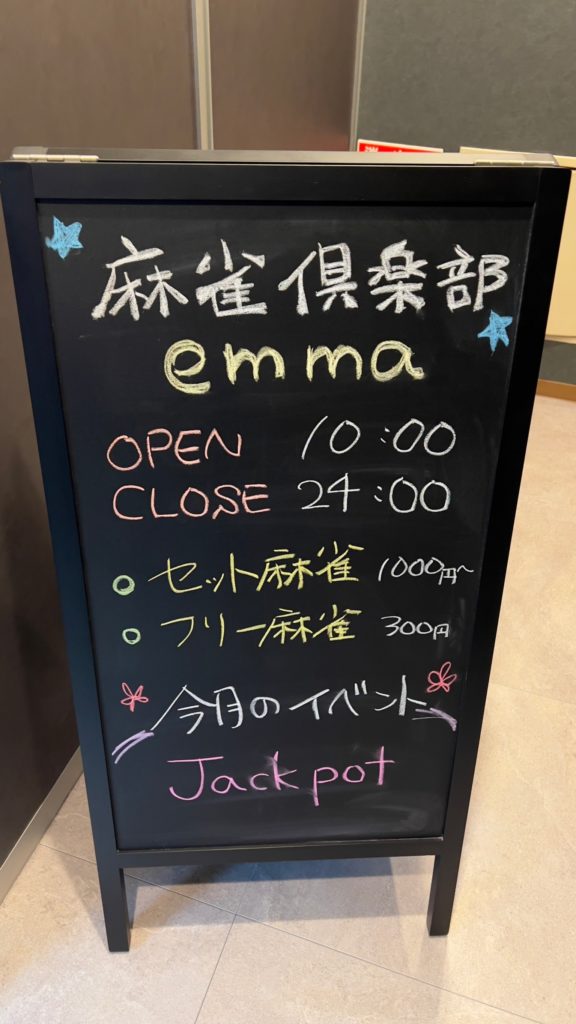 麻雀倶楽部
emma
OPEN 10:00
CLOSE 24:00
○ セット麻雀 1000円~
○ フリー麻雀 300円
今月のイベント
Jackpot